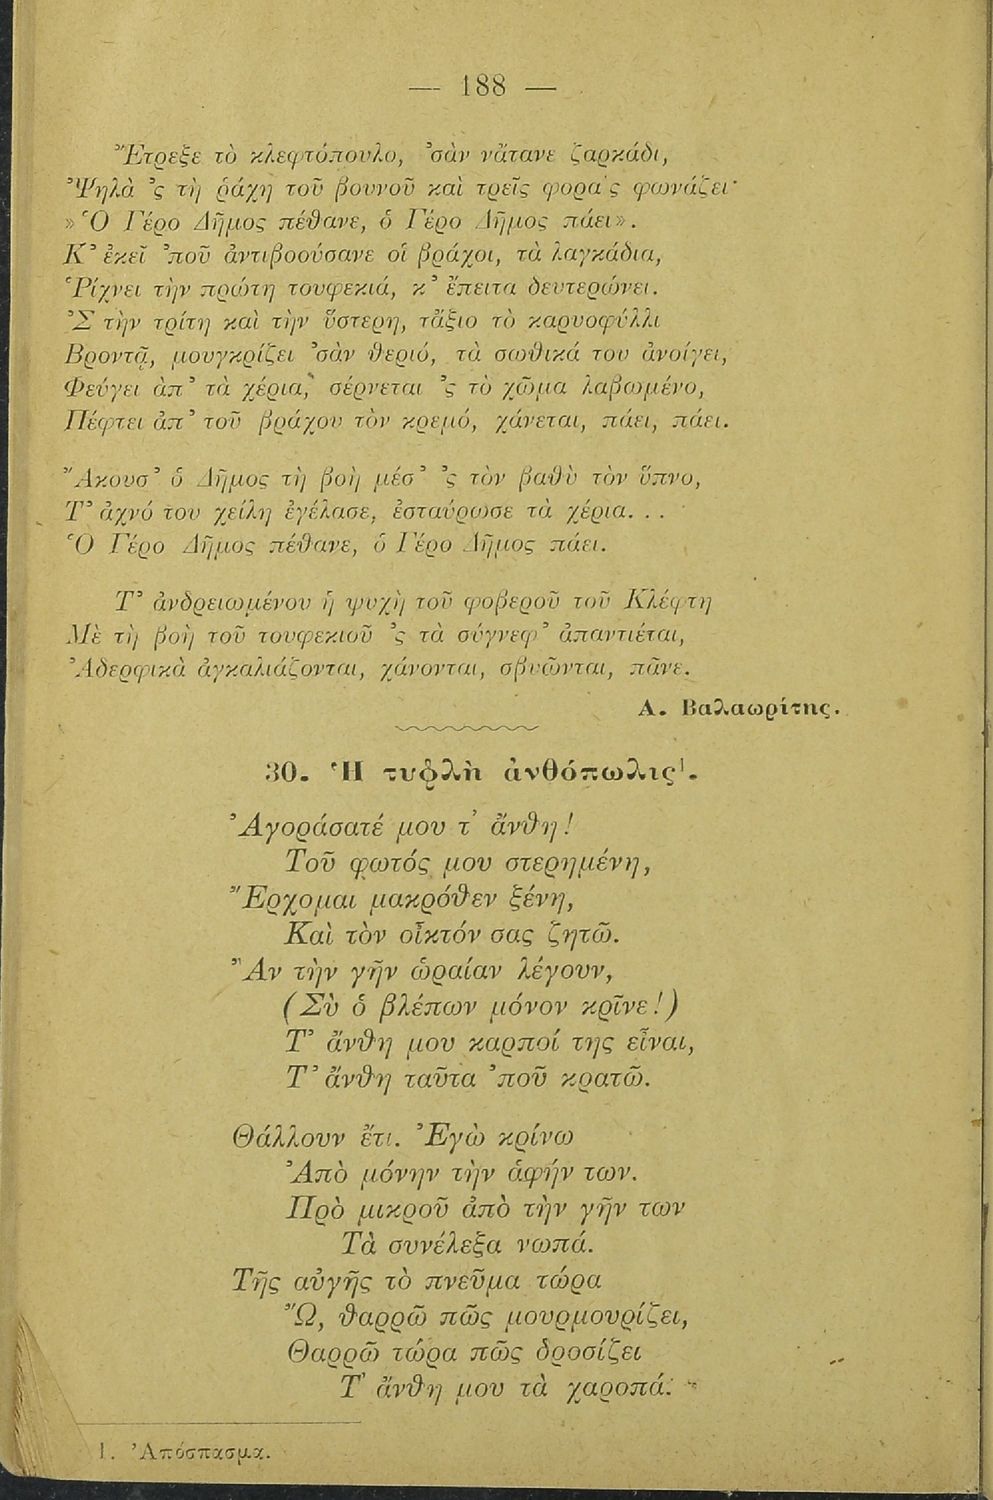 — 188 —
Ἔτρεξε τὸ κλεφτόπουλο, ᾿σὰν νἄτανε ζαρκάδι,
Ψηλὰ ᾿ς τὴ ῥάχη τοῦ βουνοῦ καὶ τρεῖς φορα ς φωνάζει·
»Ὁ Γέρο Δῆμος πέθανε, ὁ Γέρο Δῆμος πάει».
Κ᾿ ἐκεῖ ᾿ποῦ ἀντιβοούσανε οἱ βράχοι, τὰ λαγκάδια,
Ῥίχνει τὴν πρώτη τουφεκιά, κ᾿ ἔπειτα δευτερώνει.
᾿Σ τὴν τρίτη καὶ τὴν ὕστερη, τἄξιο τὸ καρυοφύλλι
Βροντᾷ, μουγκρίζει ᾿σὰν θεριό, τὰ σωθικά του ἀνοίγει,
Φεύγει ἀπ᾿ τὰ χέρια, σέρνεται ᾿ς τὸ χῶμα λαβωμένο,
Πέφτει ἀπ᾿ τοῦ βράχου τὸν κρεμό, χάνεται, πάει, πάει.
Ἄκουσ᾿ ὁ Δῆμος τὴ βοὴ μέσ᾿ ᾿ς τὸν βαθὺ τὸν ὕπνο,
Τ᾿ ἀχνό του χείλη ἐγέλασε, ἐσταύρωσε τὰ χέρια. . .
Ὁ Γέρο Δῆμος πέθανε, ὁ Γέρο Δῆμος πάει.
Τ᾿ ἀνδρειωμένου ἡ ψυχὴ τοῦ φοβεροῦ τοῦ Κλέφτη
Μὲ τὴ βοὴ τοῦ τουφεκιοῦ ᾿ς τὰ σύγνεφ᾿ ἀπαντιέται,
Ἀδερφικὰ ἀγκαλιάζονται, χάνονται, σβυῶνται, πᾶνε.
Α. Βαλαωρίτης.
30. Ἡ τυφλὴ ἀνθόπωλις¹.
Ἀγοράσατέ μου τ᾿ ἄνθη!
Τοῦ φωτός μου στερημένη,
Ἔρχομαι μακρόθεν ξένη,
Καὶ τὸν οἶκτόν σας ζητῶ.
Ἂν τὴν γῆν ὡραίαν λέγουν,
(Σὺ ὁ βλέπων μόνον κρῖνε!)
Τ᾿ ἄνθη μου καρποί της εἶναι,
Τ᾿ ἄνθη ταῦτα ᾿ποῦ κρατῶ.
Θάλλουν ἔτι. Ἐγὼ κρίνω
Ἀπὸ μόνην τὴν ἁφήν των.
Πρὸ μικροῦ ἀπὸ τὴν γῆν των
Τὰ συνέλεξα νωπά.
Τῆς αὐγῆς τὸ πνεῦμα τώρα
Ὤ, θαρρῶ πῶς μουρμουρίζει,
Θαρρῶ τώρα πῶς δροσίζει
Τ᾿ ἄνθη μου τὰ χαροπά.
1. Ἀπόσπασμα.